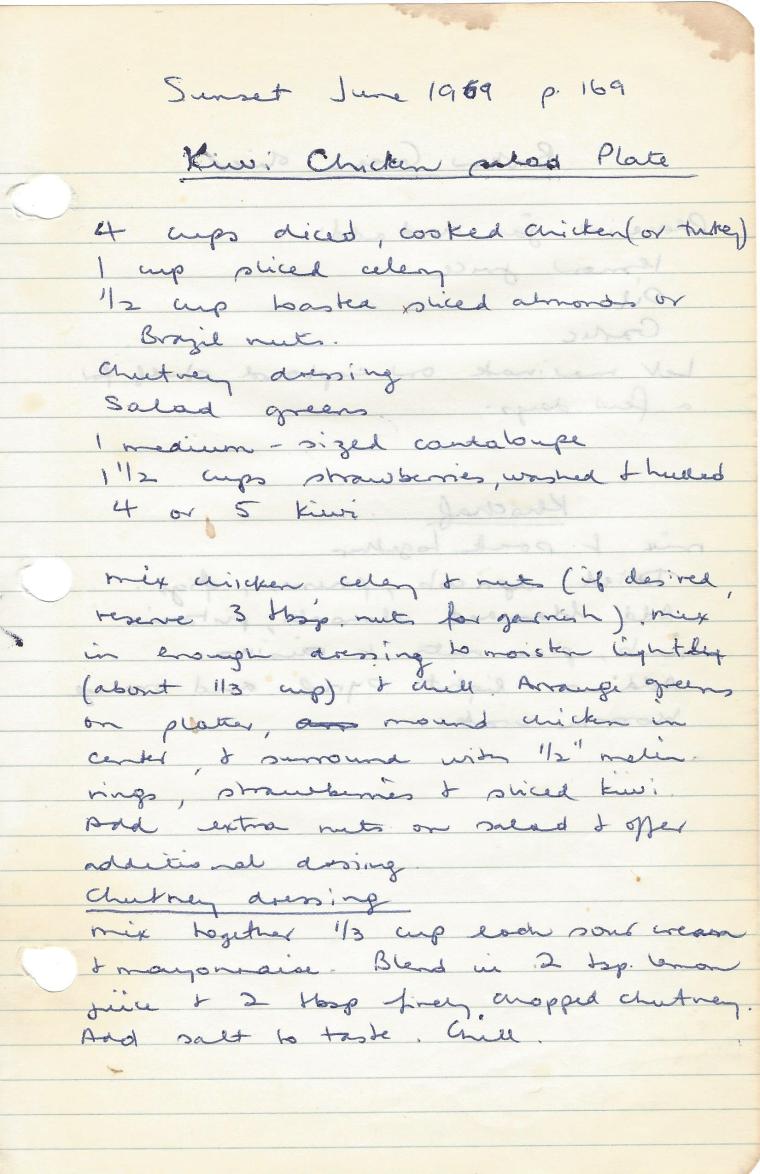 Sunset June 1969 p. 169
Kiwi Chicken salad Plate
4 cups diced, cooked chicken (or turkey)
1 cup sliced celery
1/2 cup toasted sliced almonds or
Brazil nuts.
Chutney dressing
Salad greens
1 medium-sized cantaloupe
1 1/2 cups strawberries, washed & hulled
4 or 5 kiwi
mix chicken, celery & nuts (if desired,
reserve 3 tbsp. nuts for garnish). mix
in enough dressing to moisten lightly
(about 1/3 cup) & chill. Arrange greens
on platter, mound chicken in
center, & surround with 1/2" melon
rings, strawberries & sliced kiwi.
Add extra nuts on salad & offer
additional dressing.
Chutney dressing
mix together 1/3 cup each sour cream
& mayonnaise. Blend in 2 tsp. lemon
juice & 2 tbsp finely chopped chutney.
Add salt to taste. Chill.